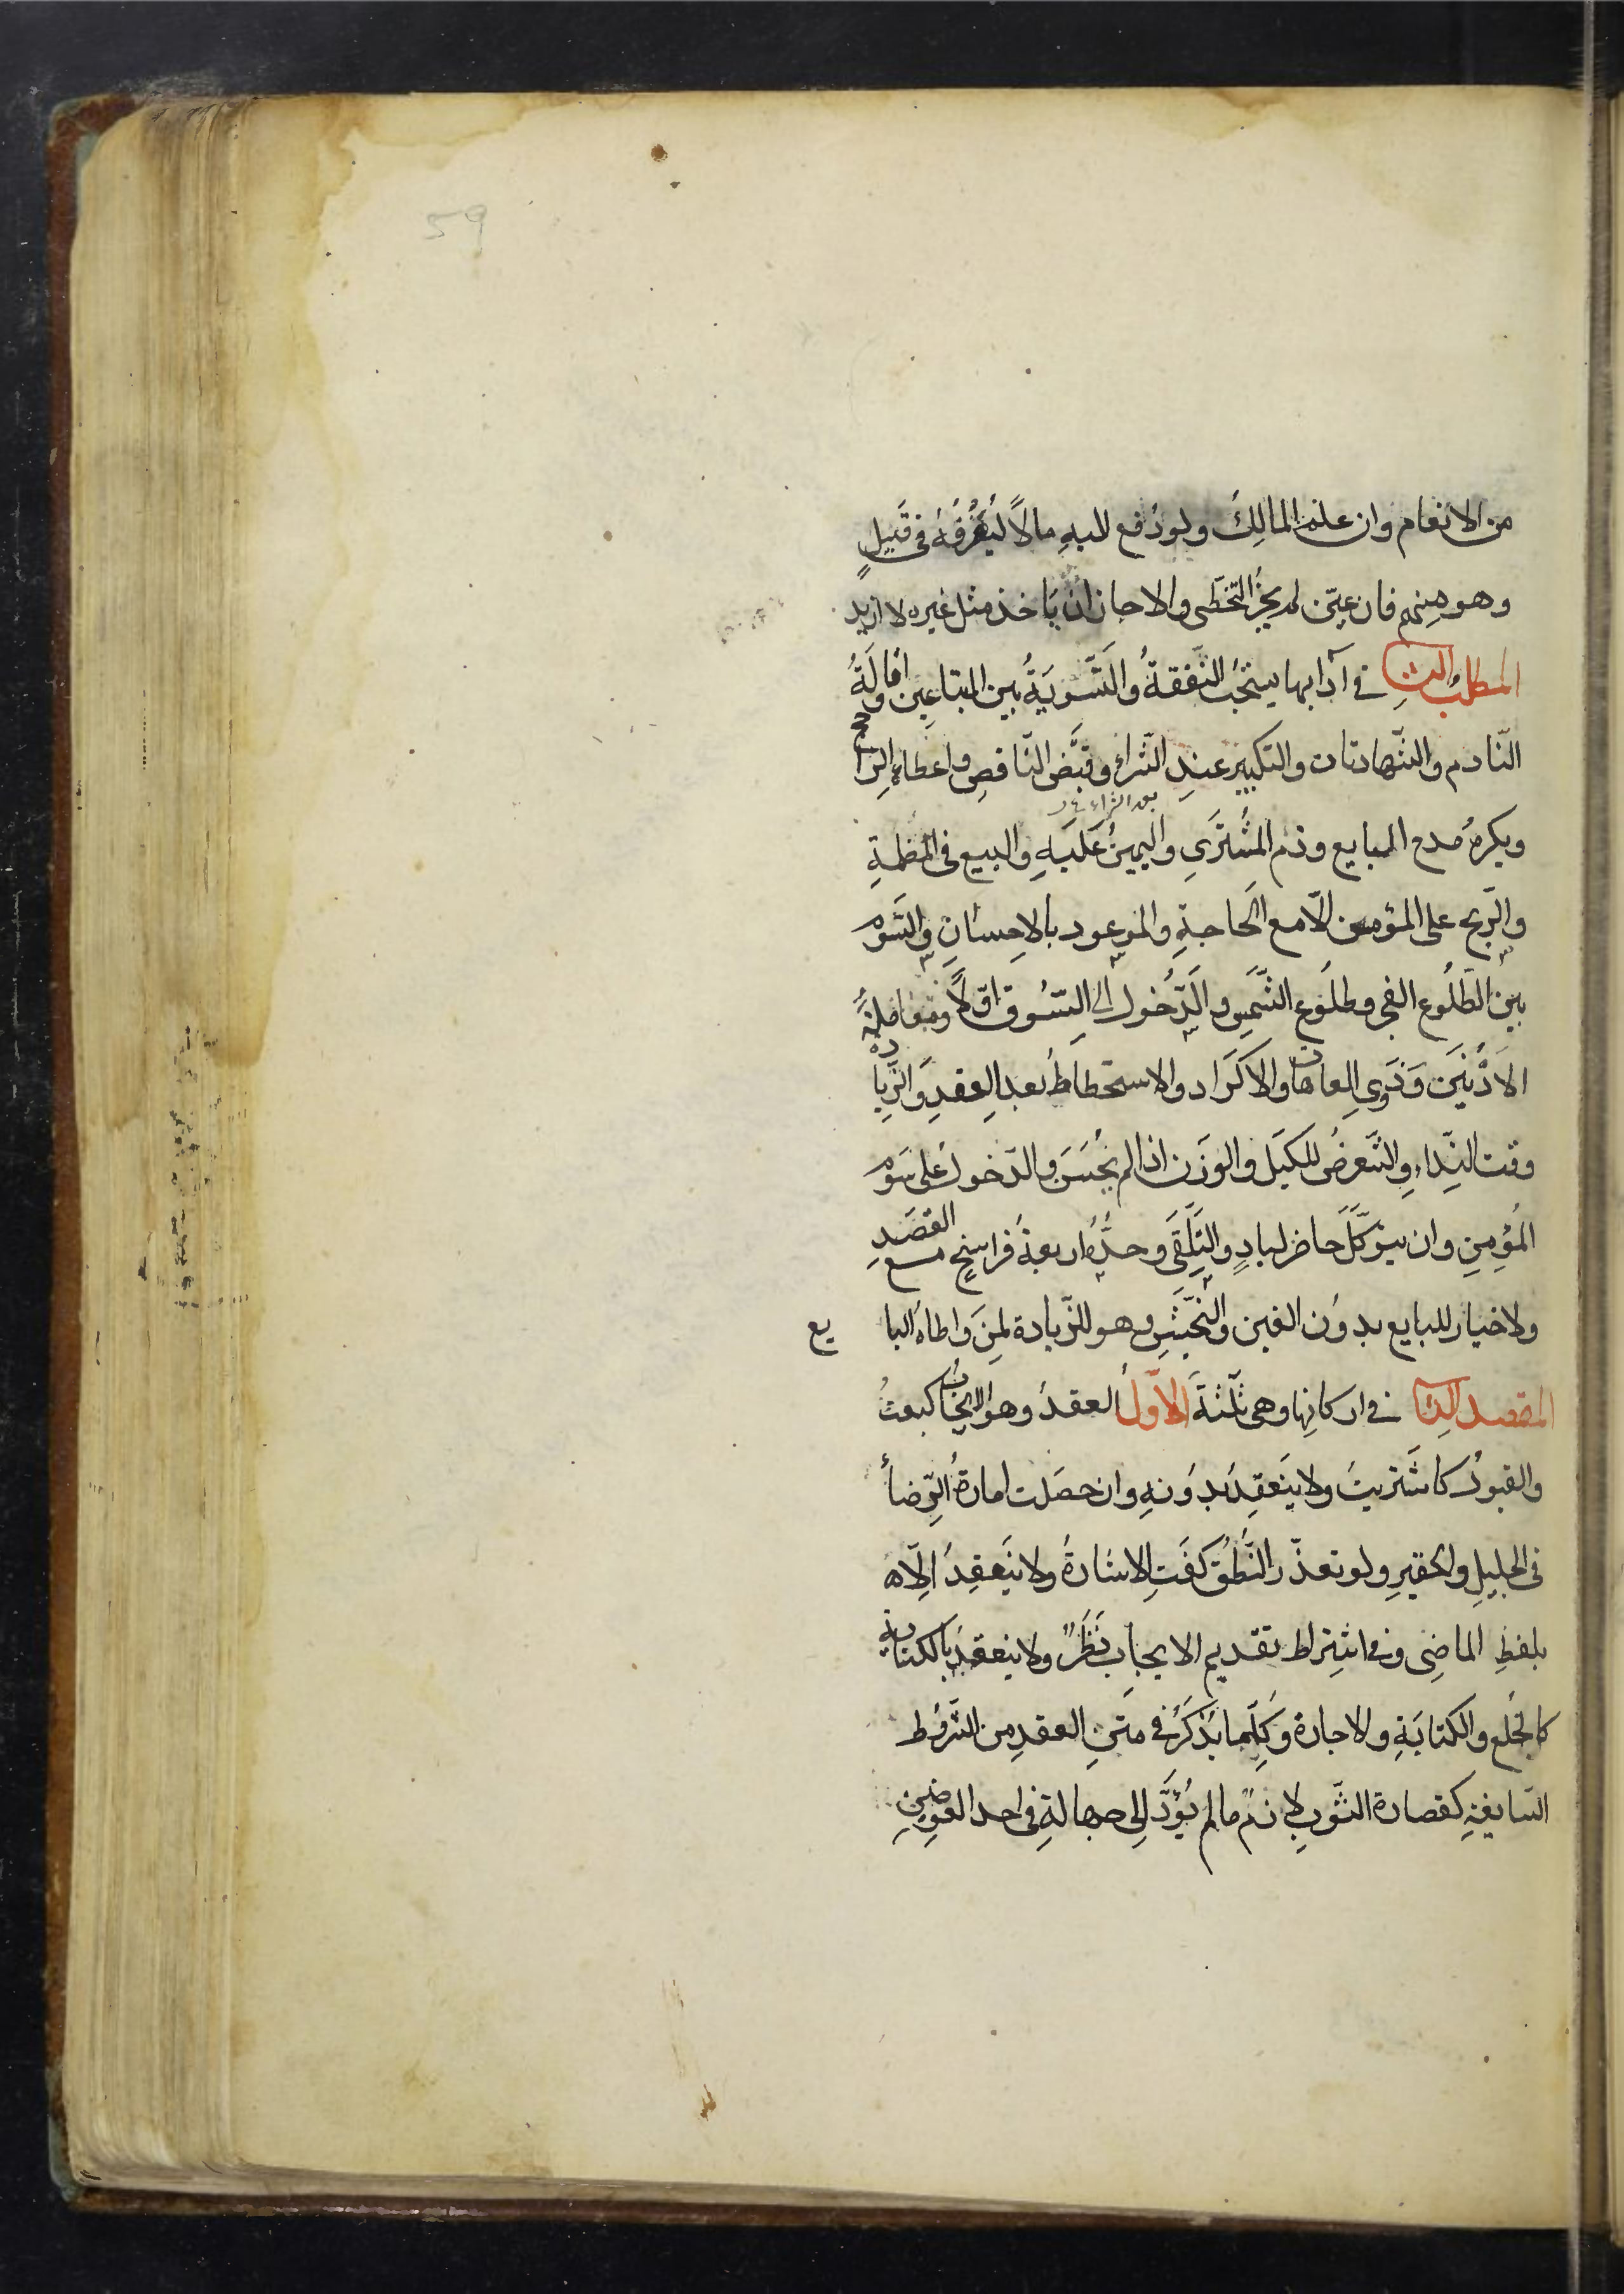 59
من الانعام وان علم المالك ولو دُفع اليهِ مالاً ليُفرقهُ فى قَبيلٍ
وهو مِنهم فان عيّن لم يجُز التخطّى والا جاز ان يَاخذ مثل غيره لا ازيد
المطلب الثانى فى آدابها يستحبُ التفقهُ والتَّسويَةُ بين المبتاعِين واقالَةُ
النّادم والشّهادتان والتكبير عند الشّراءِ وقبَض النّاقصِ واعطاء الراجح
بعد الشراء
ويكرهُ مدح المبايع وذم المشترَى واليمينُ عَليَهِ والبيع فى المظلمةِ
والرّبح على المؤمن الّا مع الحَاجةِ والموعود بالاحِسانِ والسَّوم
بين الطلُوع الفجر وطلوُع الشّمسِ والدّخول الى السّوق اوّلاً ومعاملةُ
الادْنَينَ وَذَوِى العاهات والاكَراد والاستحطاطُ بعد العقدِ والزّيادة
وقت النِّداءِ والتّعرضُ للكيَل والوَزن اذا لم يحُسَن والدّخول على سَوم
المُؤمِنِ وان يتوكّلَ حاضر لبادٍ والتلَقّى وحدُّهُ اربعةُ فراسخٍ مع القصَدِ
ولا خيار للبايع بدوُن الغبن والنّجَشِ وهو الزّيادة لمِنَ واطاهُ البايع
المقصد الثانى فى اركانِها وهى ثلثة الاوّلُ العقدُ وهو الايجاب كبعتُ
والقبول كاشتريتُ ولا ينَعقِدُ بدوُنهِ وان حصَلت امارةُ الرّضا
فى الجليلِ والحقيرِ ولو تعذّر النّطُق كفَتِ الاشارةُ ولا ينَعقِدُ الّا
بلفظِ الماضِى وفى اشتِراط تقديم الايجاب نَظَرٌ ولا ينعقدُ بالكناية
كالخُلع والكتابَةِ والاجارة وكلّما يُذكَرُ فى متنِ العقدِ من الشّروُط
السّايغةِ كقصارة الثّوبِ لازمٌ ما لم يُؤدّ الى جهالةِ فى احد العوِضينِ